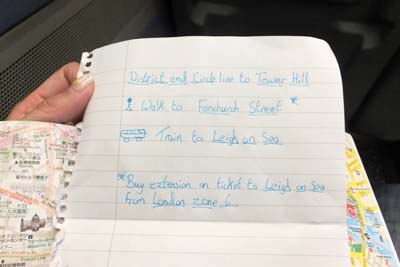 District and Circle line to Tower Hill
Walk to Fenchurch Street *
Train to Leigh on Sea
*Buy extension on ticket to Leigh on Sea
from London zone 6